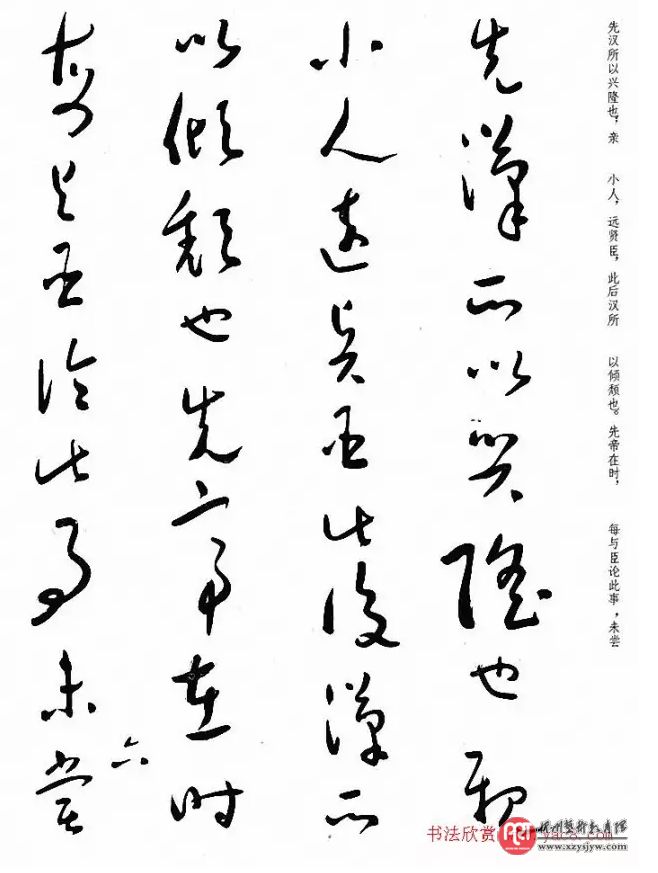 先汉所以兴隆也，亲 小人，远贤臣，此后汉所 以倾颓也。先帝在时， 每与臣论此事，未尝
先漢所以興隆也親
小人遠賢臣此後漢所
以傾頹也先帝在時
每與臣論此事未嘗
六
书法欣赏
yac8.com
www.xzysjyw.com